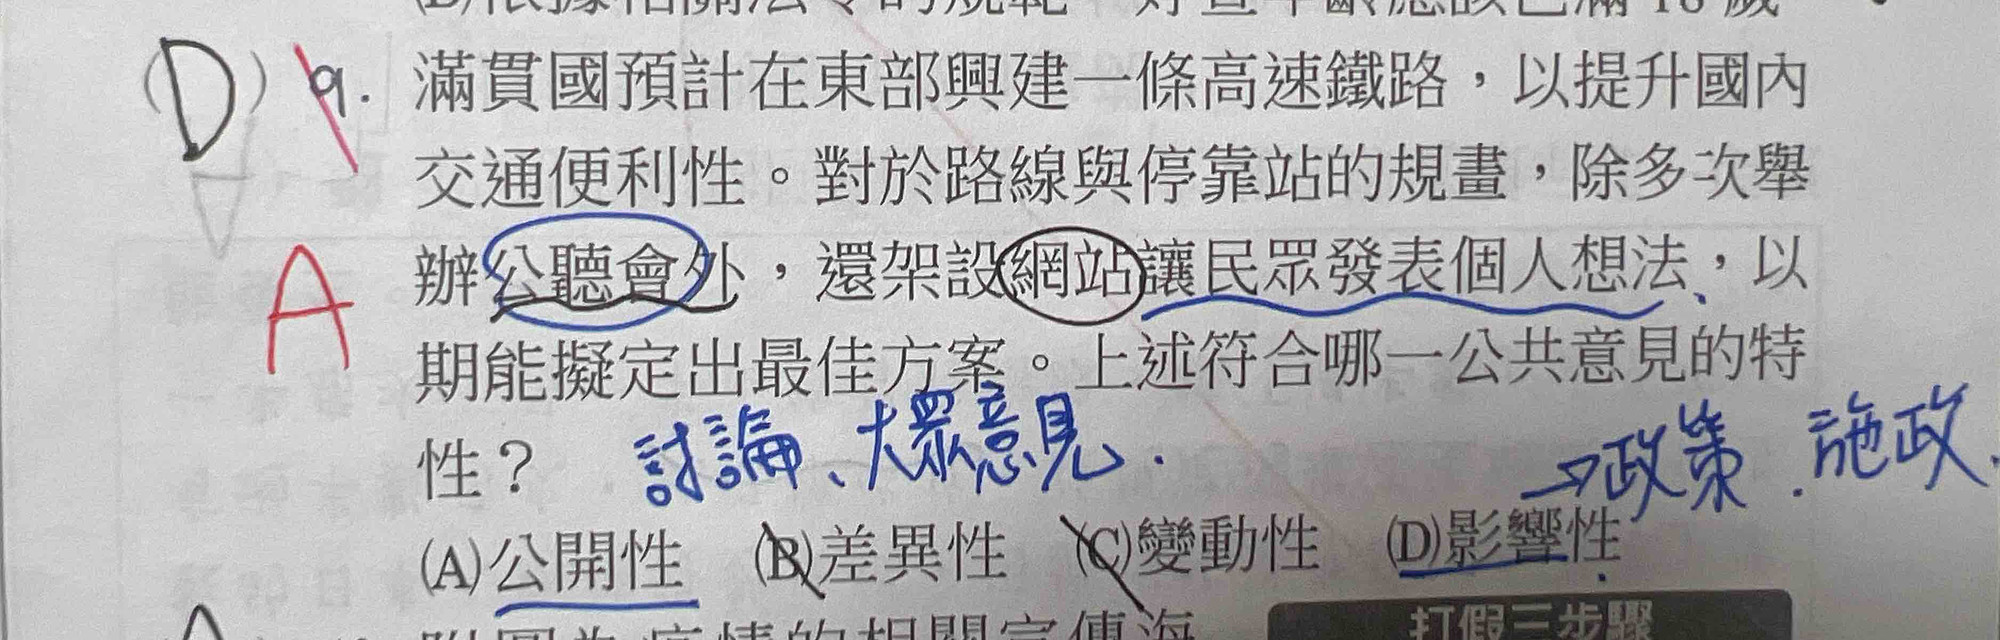 (D) 9. 滿貫國預計在東部興建一條高速鐵路，以提升國內
交通便利性。對於路線與停靠站的規畫，除多次舉
A 辦公聽會外，還架設網站讓民眾發表個人想法，以
期能擬定出最佳方案。上述符合哪一公共意見的特
性？ 討論、大眾意見. →政策.施政.
(A)公開性 (B)差異性 (C)變動性 (D)影響性
打假三步驟